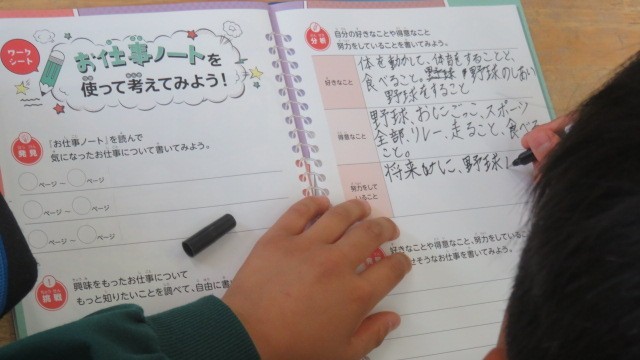 ワーク
シート
お仕事ノートを
使って考えてみよう!
発見
『お仕事ノート』を読んで
気になったお仕事について書いてみよう。
ページ～ ページ
ページ～ ページ
ページ～ ページ
挑戦
興味をもったお仕事について
もっと知りたいことを調べて、自由に書
分析
自分の好きなことや得意なこと
努力をしていることを書いてみよう。
好きなこと
体を動かして、体育をすることと、
食べること。野球のしあい
野球をすること
得意なこと
野球、おにごっこ、スポーツ
全部、リレー、走ること、食べる
こと。
努力をして
いること
将来のために、野球
好きなことや得意なこと、努力をしている
せそうなお仕事を書いてみよう。